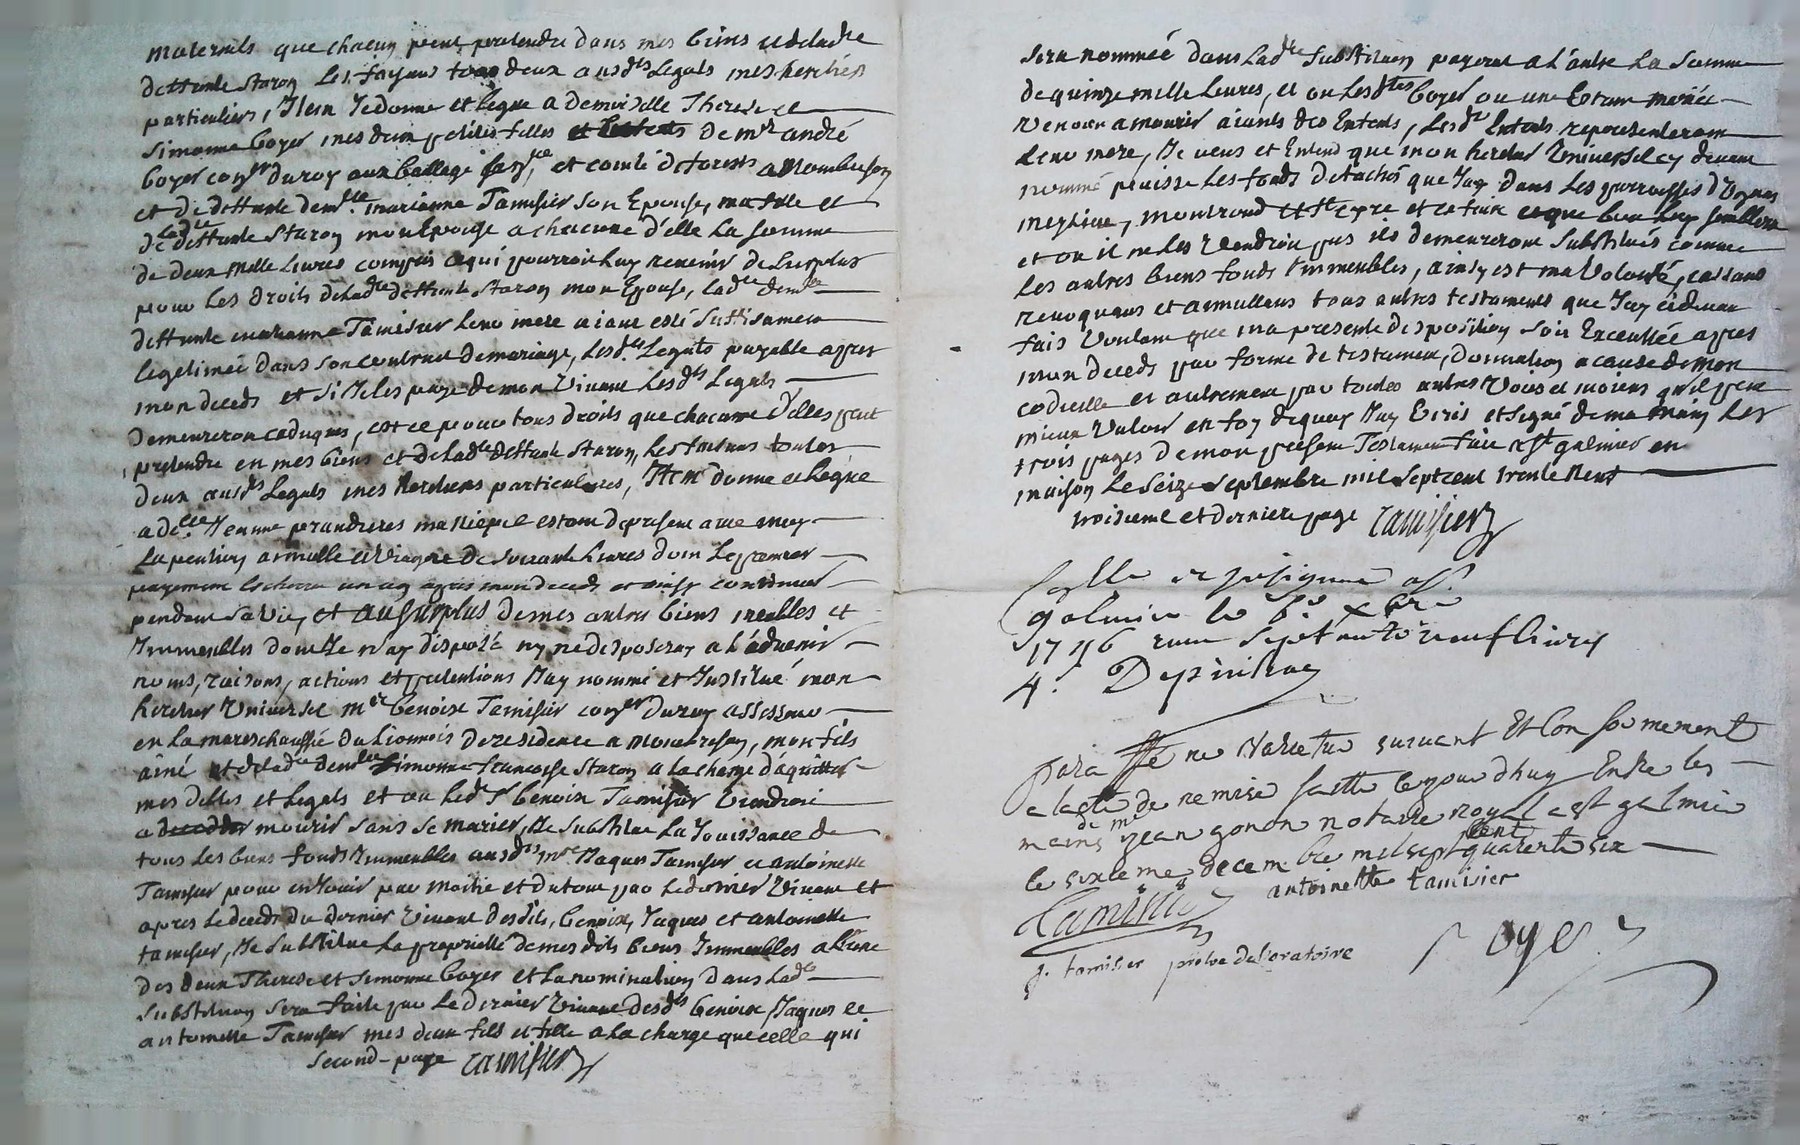 maternels que chacun peut pretendre dans mes biens et de ladte
deffunte Staron les faisant tous deux ausds Legats mes heritiers
particuliers, Item Je donne et legue a demoiselle Therese et
Simonne Boyer mes deux petites filles de mr andré
Boyer coner du roy aux Balliage et comté de forests a Montbrison
et de deffunte demlle marianne Tamisier son Epouse, ma fille et
de ladte deffunte Staron mon Epouse a chacune d'elle La somme
de deux mille Livres compris ce qui pourroit luy revenir de surplus
pour les droits de ladte deffunte Staron mon Epouse, ladte demlle
deffunte marianne Tamisier leur mere aiant esté suffisament
legetimée dans son contract de mariage, lesds Legats payable apres
mon deceds et si Je les paye de mon vivant lesds Legats
demeureront caduques, et ce pour tous droits que chacune d'elles peut
pretendre en mes biens et de ladte deffunte Staron, les faisant toutes
deux ausds Legats mes heritieres particulieres, Item donne et legue
a delle Jeanne perandieres ma niepce estant de present avec moy
La pention annuelle et viagere de soixante Livres dont le premier
payement eschera un an apres mon deceds et ainsy continuer
pendant sa vie, et au surplus de mes autres biens meubles et
Immeubles dont Je n'ay disposé ny ne disposeray a l'advenir
noms, raisons, actions et pretentions Jay nommé et Institué mon
heritier Universel mr Benoist Tamisier coner du roy assesseur
en la mareschaussée du Lionnois de residence a Montbrison, mon fils
ainé et de ladte demlle Simonne francoise Staron a la charge d'aquitter
mes debtes et Legats et ou led. Sr Benoist Tamisier viendroit
a deceder mourir sans se marier, Je substitue La Jouissance de
tous les biens fonds Immeubles ausds mre Jaques Tamisier et antoinette
Tamisier pour en Jouir par moitié et du tout par le dernier vivant et
apres le deceds du dernier vivant desdits, Benoist, Jaques et antoinette
tamisier, Je substitue La proprieté de mes dits biens Immeubles a l'une
des deux Therese et Simonne Boyer et la nomination dans ladte
substitution sera faite par le dernier vivant desds Benoist Jaques et
antoinette Tamisier mes deux fils et fille a la charge que celle qui
second page Tamisier
sera nommée dans Ladte substitution payera a l'autre La somme
de quinze mille Livres, et ou lesdtes Boyer ou une Estant mariée
Venoient a mourir aiants des Enfents, lesds Enfents representeront
Leur mere, Je veux et Entend que mon heritier Universel cy devant
nommé puisse les fonds detachés que Jay dans les parroisses
Meylieu, Montrond et St Cyre et ce faire ce que bon luy semblera
et ou il ne les vendroit pas ils demeureront substitués comme
les autres biens fonds Immeubles, ainsy est ma volonté, cassant
revoquant et annullant tous autres testaments que Jay cidevant
fais voulant que ma presente disposition soit Executtée apres
mon deceds par forme de testament, donnation a cause de mort
codicille et autrement par toutes autres voies et moiens qu'il peut
mieux valoir en foy dequoy Jay Ecris et signé de ma main les
trois pages de mon present Testament fait a St galmier en
maison le seize septembre mil sept cent trente neuf
troisieme et derniere page Tamisier
galmier le 6e xbre
1746 sept livres
4s. Depinhac
paraffé ne varietur suivant et Conformement
a lacte de remise faitte ce jourdhuy Entre les
mains de me jean gonon notaire royal a st galmier
le sixieme decembre mil sept cent quarente six
antoinette tamisier
Tamisier
j. tamisier pretre de l'oratoire
Boyer